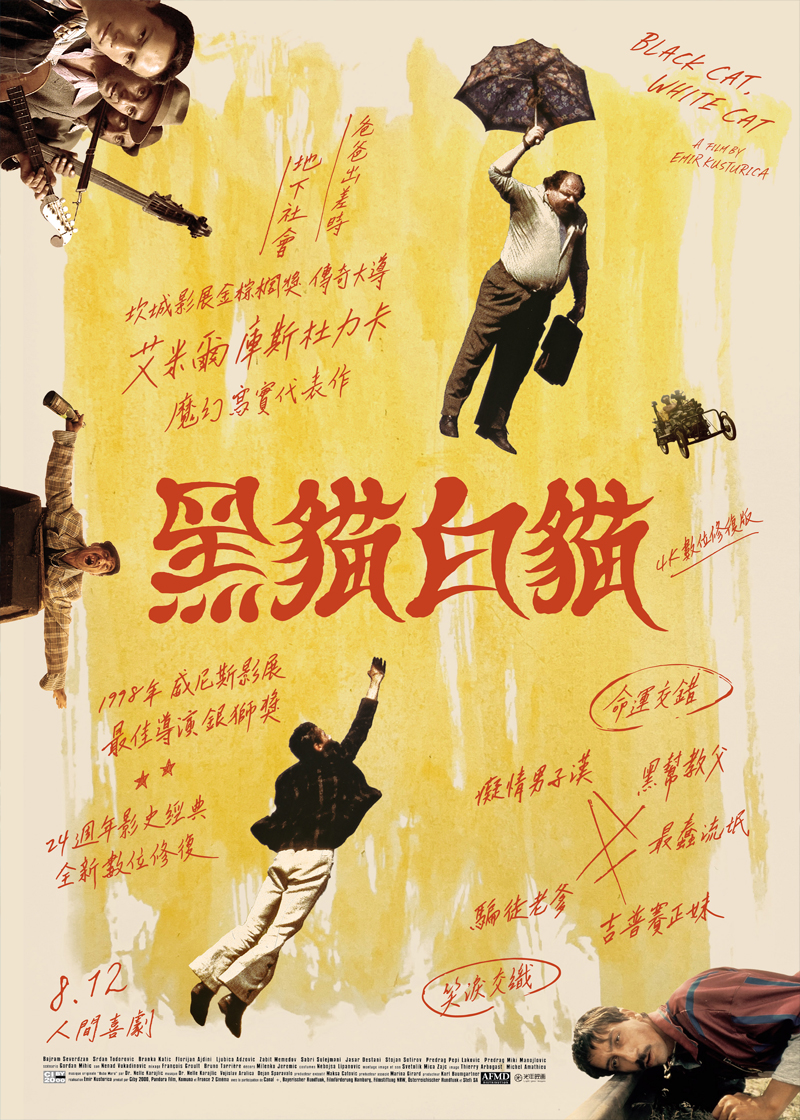 BLACK CAT,
WHITE CAT
A FILM BY
EMIR KUSTURICA
爸爸出差時
地下社會
坎城影展金棕櫚獎 傳奇大導
艾米爾庫斯杜力卡
魔幻寫實代表作
黑貓白貓
4K數位修復版
1998年 威尼斯影展
最佳導演銀獅獎
24週年影史經典
全新數位修復
命運交錯
癡情男子漢
黑幫教父
最蠢流氓
騙徒老爹
吉普賽正妹
笑淚交織
8.12
人間喜劇
Bajram Severdzan Srdan Todorovic Branka Katic Florijan Ajdini Ljubica Adzovic Zabit Memedov Sabri Sulejmani Jasar Destani Stojan Sotirov Predrag Pepi Lakovic Predrag Miki Manojlovic
scénario Gordan Mihic
Emir Kusturica produit par Ciby 2000, Pandora Film, Komuna et France 2 Cinema
CIBY
2000
AFMD
光年映畫